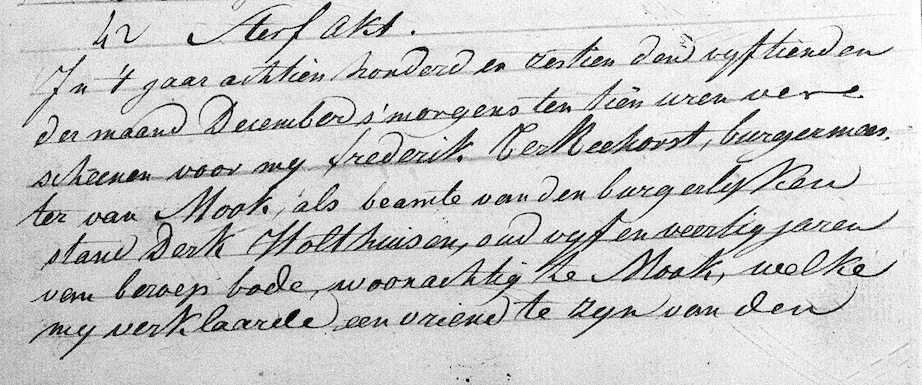 42 Sterf Akt.
In 't jaar achtien honderd en zestien den vyftienden
der maand December s'morgens ten tien uren vere
scheenen voor my frederik Ter Meehorst, burgermees
ter van Mook, als beamte van den burgerlyken
stand Derk Holthuisen, oud vyf en veertig jaren
van beroep bode, woonachtig te Mook, welke
my verklaarde een vriend te zyn van den